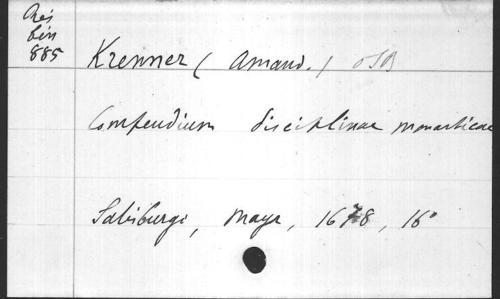 Res
bin
885
Krenner (Amand.) OSB
Compendium disciplinae monasticae
Salisburgi, Mayr, 1678, 16°